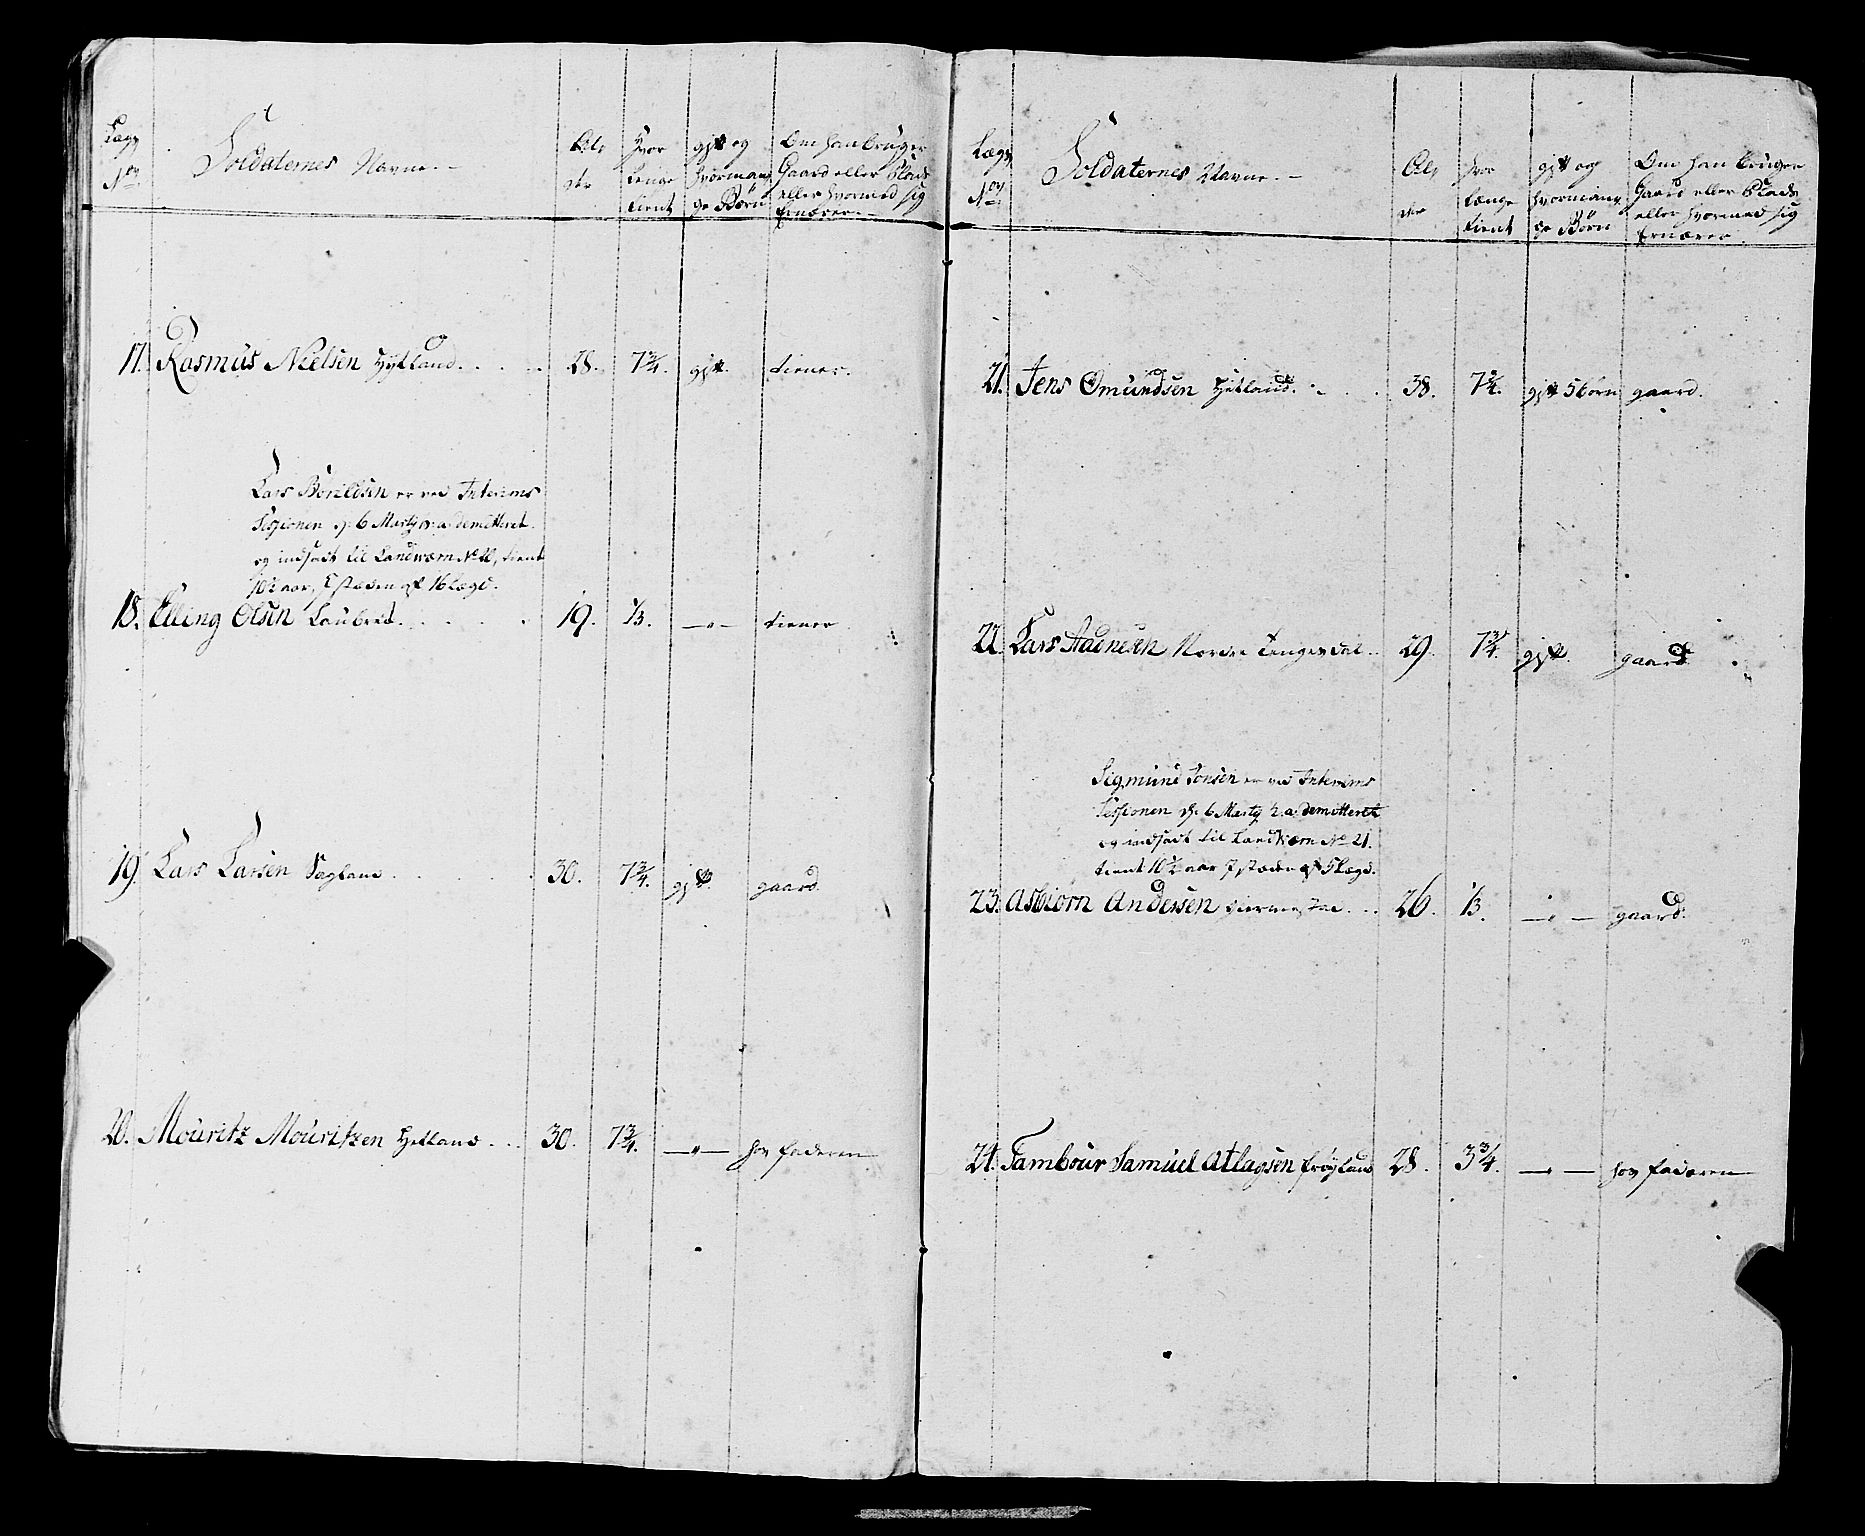 Lægs No.
Soldaternes Navne.
Alder
Hvor lenge tient
gift og hvor mange Børn
Om han bruger Gaard eller Plads eller hvormed sig Ernærer.
17. Rasmus Nielsen Hytland. 28. 7 3/4. gift. tiener.
Lars Börildsen er ved Interims
Sessionen d. 6 Martz h: a: demitteret
og indsadt til Landwærn No 20, tient
10 1/2 aar, I stæden af 16 Lægd.
18. Elling Olsen Laubred. 19. 1/3. — " — tiener
19. Lars Larsen Sagland. 30. 7 3/4. gift. gaard.
20. Mouritz Mouritzen Hetland. 30. 7 3/4. — " — hos faderen
Lægs No.
Soldaternes Navne.
Alder
hvor længe tient
gift og hvormange Børn
Om han bruger Gaard eller Plads eller hvormed sig Ernærer.
21. Jens Omundsen Hetland. 38. 7 3/4. gift 5 børn gaard.
22. Lars Aadnesen Nordre Tengesdal. 29. 7 3/4. gift. gaard.
Sigmund Jonsen er ved Interims
Sessionen d. 6 Martz h. a. demitteret
og indsadt til Landværn No 21.
tient 10 1/2 aar I stæden af 5 Lægd.
23. Asbiörn Andersen 26. 1/3. — " — gaard.
24. Tambour Samuel Atlagsen Frøyland 28. 3 3/4. — " — hos faderen